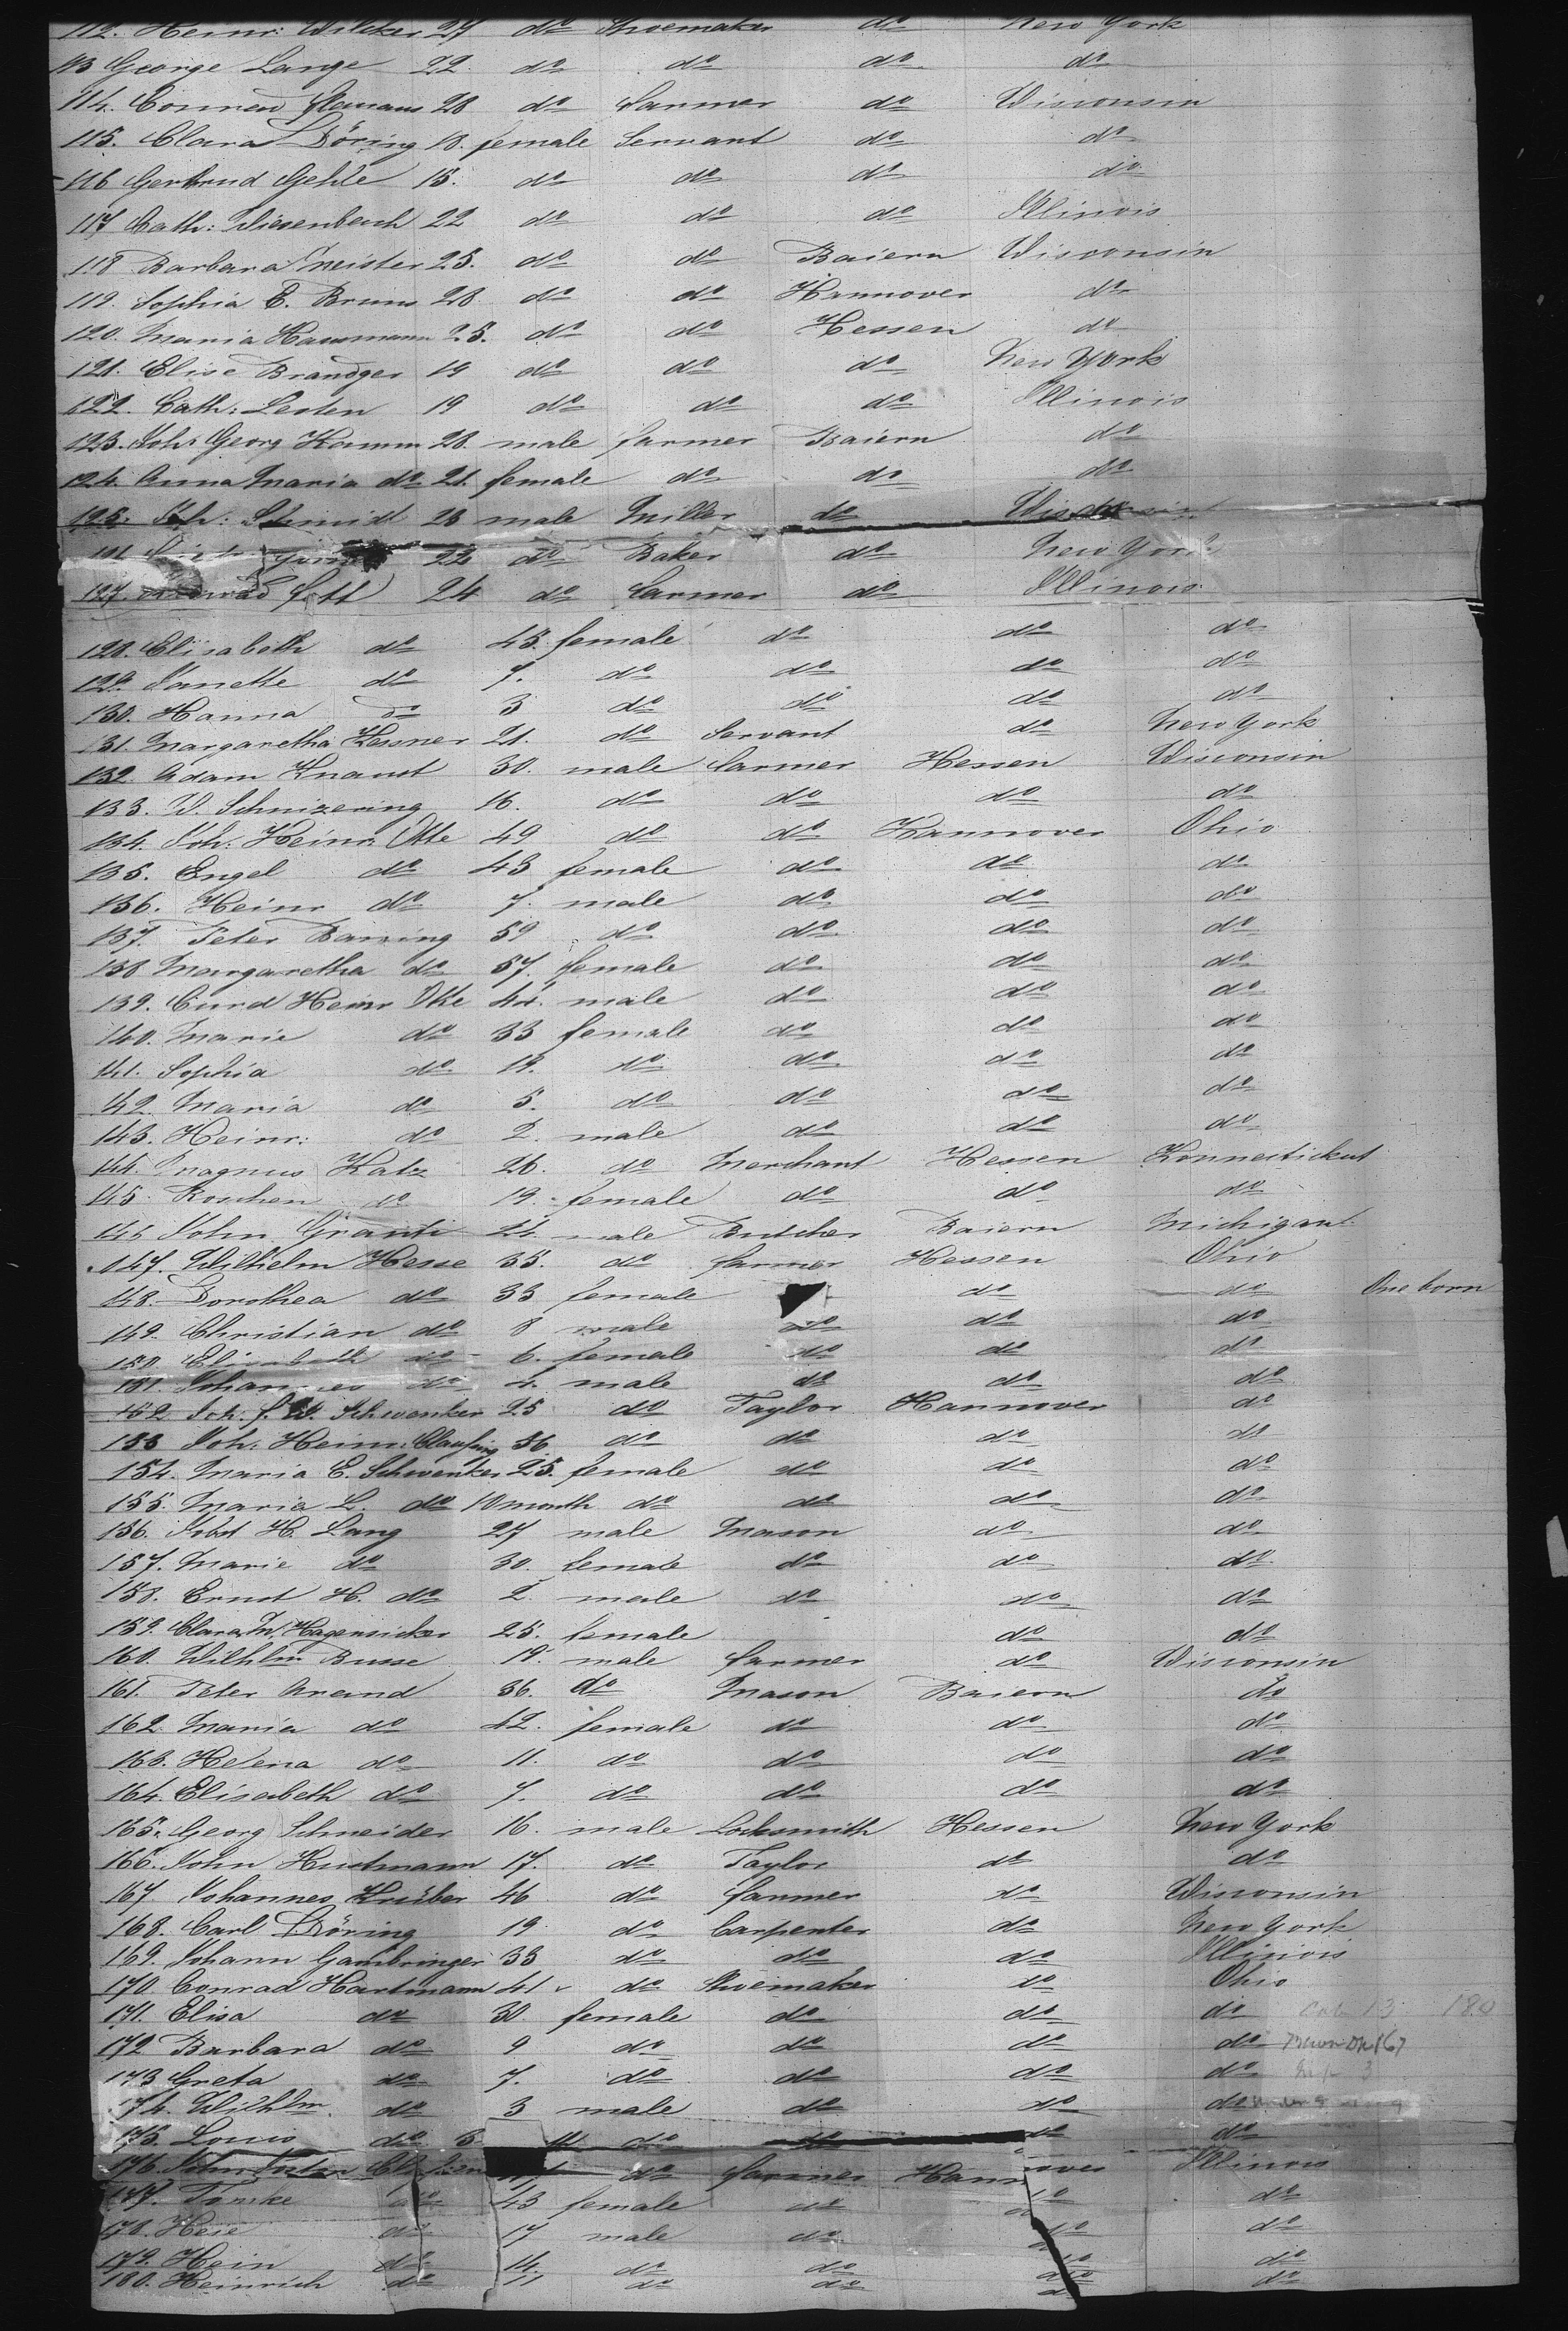 112. Heinr: Wilcker 27 do Shoemaker do New York
113 George Lange 22. do do do do
114. Conrad 28 do Farmer do Wisconsin
115. Clara Döring 18. female Servant do do
116 Gertrud Gehle 15. do do do do
117 Cath: Wiesenbach 22 do do do Illinois
118 Barbara Meister 25. do do Baiern Wisconsin
119. Sophia E. Bruns 28 do do Hannover do
120. Maria Hausmann 25. do do Hessen do
121. Elise Brandger 19 do do do New York
122. Cath: Lesten 19 do do do Illinois
123. Joh: Georg Hamm 28. male farmer Baiern do
124. Anna Maria do 21. female do do do
125. Joh: Schmidt 23 male Miller do Wisconsin
22 do Baker do New York
127. Fott 24 do Farmer do Illinois
128. Elisabeth do 43. female do do do
129. Janette do 7. do do do do
130. Hanna do 3 do do do do
131. Margaretha Kessner 21. do Servant do New York
132. Adam Knaust 30. male farmer Hessen Wisconsin
133. W. Schnizering 16. do do do do
134. Joh: Heinr. Otte 49 do do Hannover Ohio
135. Engel do 43 female do do do
136. Heinr do 7. male do do do
137. Peter Barring 59 do do do do
138 Margaretha do 57. female do do do
139. Curd Heinr Otte 44. male do do do
140. Marie do 33 female do do do
141. Sophia do 19. do do do do
142. Maria do 5. do do do do
143. Heinr: do 2. male do do do
144. Magnus Katz 26. do Merchant Hessen Konnestickut
145. Roschen do 19. female do do do
146 John Granti 24. male Butcher Baiern Michigan
147. Wilhelm Hesse 35. do farmer Hessen Ohio
148. Dorothea do 33 female do do One born
149. Christian do 8 male do do do
150. Elisabeth do 6. female do do do
151. Johannes do 4. male do do do
152 Joh: f. W. Schwenker 25 do Taylor Hannover do
153 Joh: Heinr: Claussing 36 do do do do
154. Maria E. Schwenker 25. female do do do
155. Maria L. do 10 month do do do do
156. Jobst H. Lang 27 male Mason do do
157. Marie do 30. female do do do
158. Ernst H. do 2. male do do do
159. Clara M. Hagensicker 25. female do do
160. Wilhlm Busse 19. male farmer do Wisconsin
161. Peter Arand 36. do Mason Baiern do
162. Maria do 42. female do do do
163. Helena do 11. do do do do
164. Elisabeth do 7. do do do do
165. Georg Schneider 16. male Locksmith Hessen New York
166. John Hustmann 17. do Taylor do do
167. Johannes Huüber 46 do farmer do Wisconsin
168. Carl Döring 19 do Carpenter do New York
169. Johann Gambringer 33 do do do Illinois
170. Conrad Hartmann 41 do Shoemaker do Ohio
171. Elisa do 30. female do do do 180
172 Barbara do 9 do do do do
173 Greta do 7. do do do do
174. Wilhlm. do 3 male do do do
175. Louis do do do do do
176. John do farmer Hannover Illinois
177. Tomke do 43 female do do do
178. Heie do 17 male do do do
179. Hein do 14. do do do do
180. Heinrich do 11 do do do do